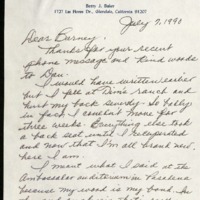 Barry J. Baker
1737 Las Flores Dr., Glendale, California 91207
July 7, 1990
Dear Berney,
Thanks for your recent
phone message and kind words
to Dju.
I would have written earlier
but I fell at Din's ranch and
hurt my back severely. So badly
in fact I couldn't move for
three weeks. Everything else took
a back seat until I recuperated
and now that I'm all brand new,
here I am.
I meant what I said at the
Ambassador auditorium in Pasadena
because my word is my bond.